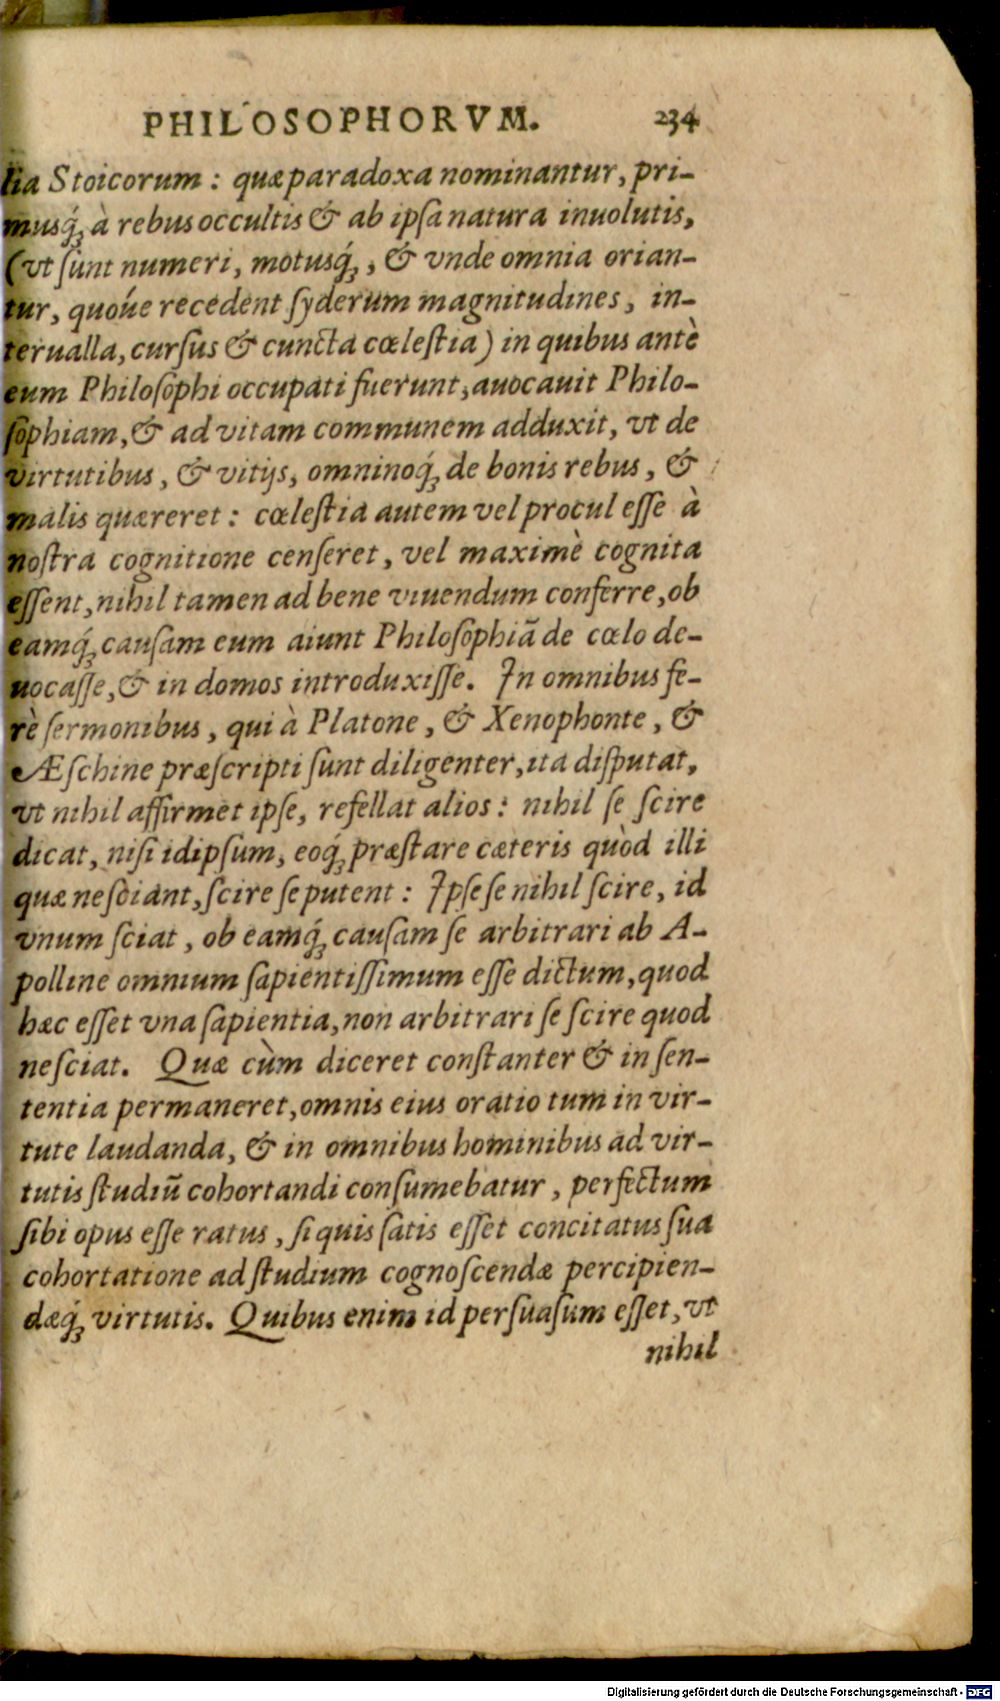 PHILOSOPHORVM. 234
lia Stoicorum : quæ paradoxa nominantur, pri-
musq́ꝫ à rebus occultis & ab ipſa natura inuolutis,
(vt ſunt numeri, motusq́ꝫ, & vnde omnia orian-
tur, quoúe recedent ſyderum magnitudines, in-
terualla, curſus & cuncta cœleſtia) in quibus antè
eum Philoſophi occupati fuerunt, auocauit Philo-
ſophiam, & ad vitam communem adduxit, vt de
virtutibus, & vitijs, omninoq́ꝫ de bonis rebus, &
malis quæreret : cœleſtia autem vel procul eſſe à
noſtra cognitione cenſeret, vel maximè cognita
eſſent, nihil tamen ad bene viuendum conferre, ob
eamq́ꝫ cauſam eum aiunt Philoſophiã de cœlo de-
uocaſſe, & in domos introduxiſſe. In omnibus fe-
rè ſermonibus, qui à Platone, & Xenophonte, &
Æſchine præſcripti ſunt diligenter, ita diſputat,
vt nihil affirmet ipſe, refellat alios : nihil ſe ſcire
dicat, niſi idipſum, eoq́ꝫ præſtare cæteris quòd illi
quæ neſciant, ſcire ſe putent : Ipſe ſe nihil ſcire, id
vnum ſciat, ob eamq́ꝫ cauſam ſe arbitrari ab A-
polline omnium ſapientiſſimum eſſe dictum, quod
hæc eſſet vna ſapientia, non arbitrari ſe ſcire quod
neſciat. Quæ cùm diceret conſtanter & in ſen-
tentia permaneret, omnis eius oratio tum in vir-
tute laudanda, & in omnibus hominibus ad vir-
tutis ſtudiũ cohortandi conſumebatur, perfectum
ſibi opus eſſe ratus, ſi quis ſatis eſſet concitatus ſua
cohortatione ad ſtudium cognoſcendæ percipien-
dæq́ꝫ virtutis. Quibus enim id perſuaſum eſſet, vt
nihil
Digitalisierung gefördert durch die Deutsche Forschungsgemeinschaft - DFG